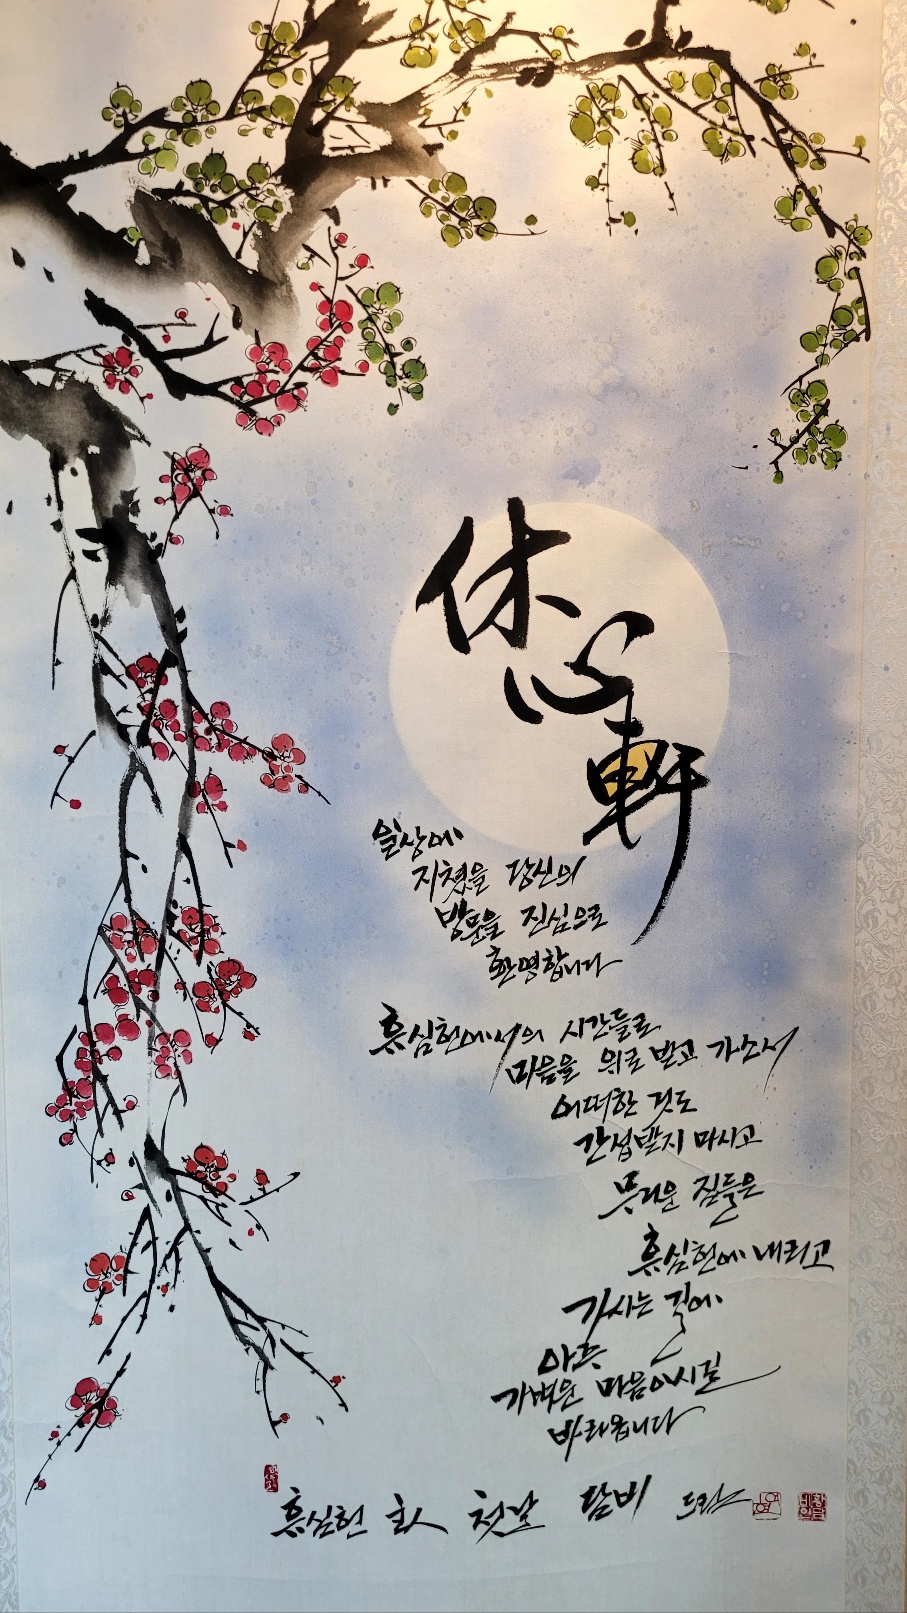 休心軒
일상에
지쳤을 당신의
방문을 진심으로
환영합니다
휴심헌에서의 시간들로
마음을 위로 받고 가소서
어떠한 것도
간섭받지 마시고
무거운 짐들은
휴심헌에 내리고
가시는 길에
아주
가벼운 마음이시길
바라옵니다
휴심헌 主人 담비